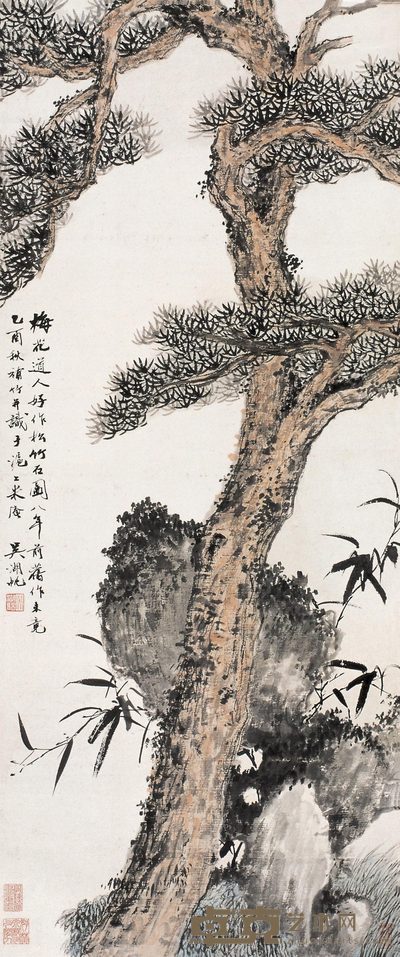 梅花道人好作松竹石圖八年前舊作未竟
乙酉秋補竹并識于滬上 吳湖帆
艺术网